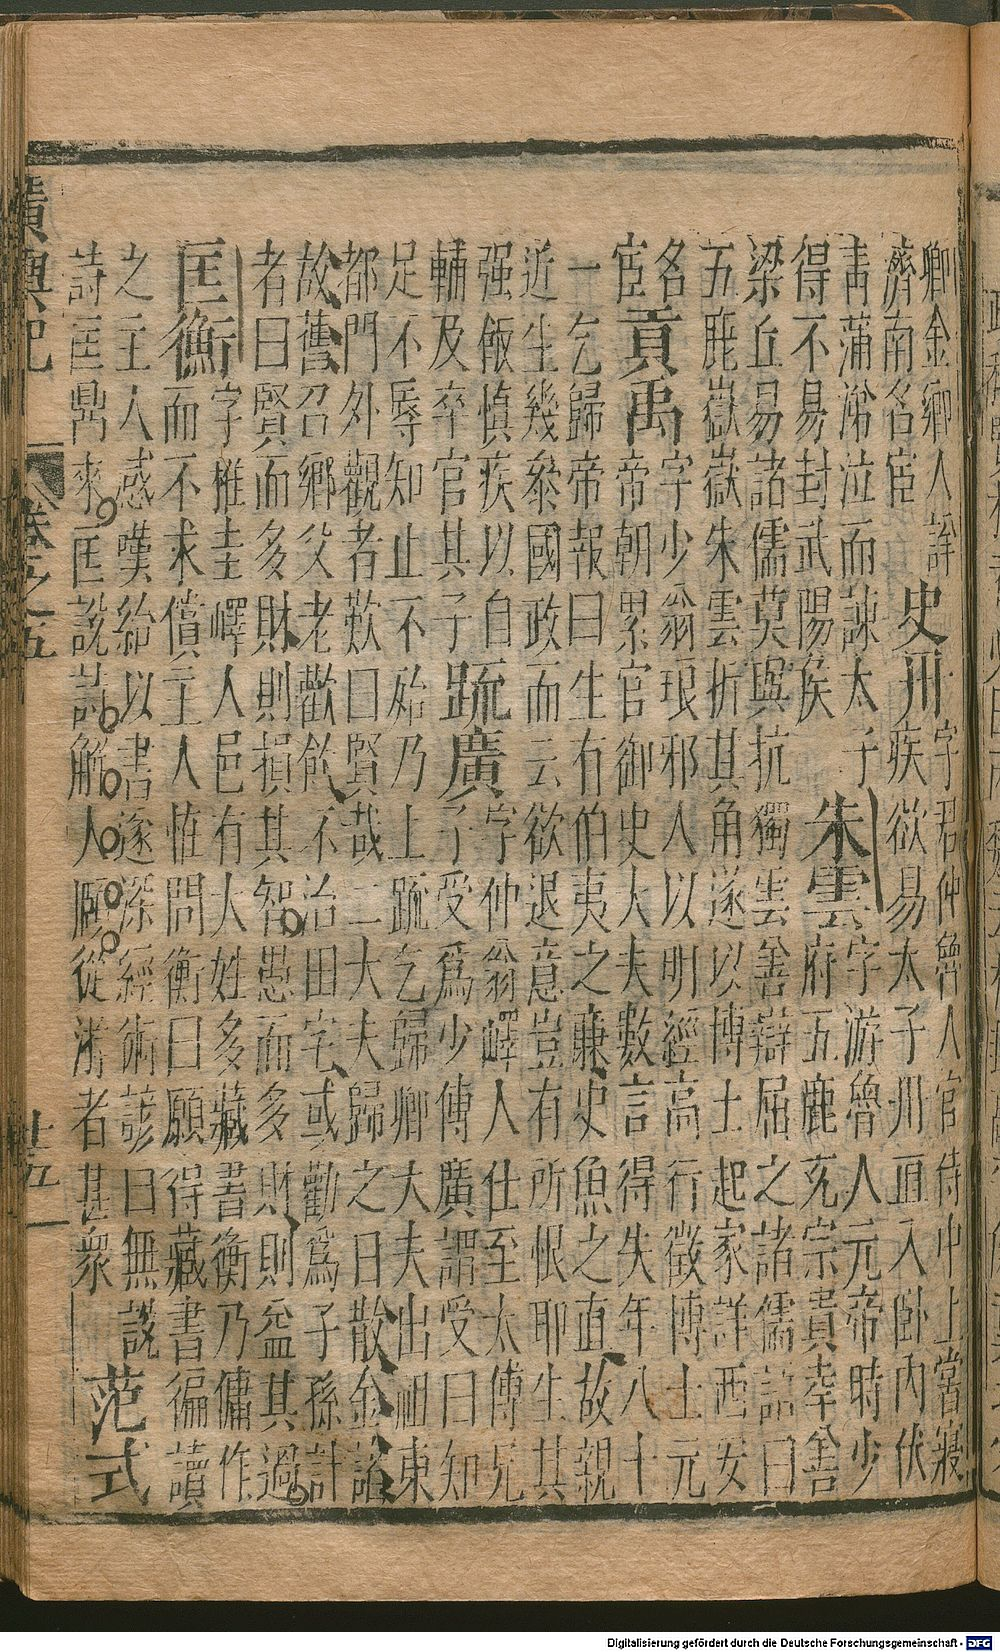 卿金鄉人詳
濟南名宦
史丹
字君仲魯人官侍中上嘗寢
疾欲易太子丹直入臥內伏
青蒲涕泣而諫太子
得不易封武陽侯
朱雲
字游魯人元帝時少
府五鹿充宗貴幸善
梁丘易諸儒莫與抗獨雲善辯屈之諸儒語曰
五鹿嶽嶽朱雲折其角遂以博士起家詳西安
名
宦
貢禹
字少翁琅邪人以明經高行徵博士元
帝朝累官御史大夫數言得失年八十
一乞歸帝報曰生有伯夷之廉史魚之直故親
近生幾參國政而云欲退意豈有所恨耶生其
强飯慎疾以自
輔及卒官其子
疏廣
字仲翁嶧人仕至太傅兄
子受爲少傅廣謂受曰知
足不辱知止不殆乃上疏乞歸卿大夫出祖東
都門外觀者歎曰賢哉二大夫歸之日散金諮
故舊召鄉父老歡飲不治田宅或勸爲子孫計
者曰賢而多財則損其智愚而多財則益其過
匡衡
字椎圭嶧人邑有大姓多藏書衡乃傭作
而不求償主人怪問衡曰願得藏書徧讀
之主人感嘆給以書遂深經術諺曰無說
詩匡鼎來匡說詩解人頤從游者甚衆
范式
廣輿記 卷之五 廿五
Digitalisierung gefördert durch die Deutsche Forschungsgemeinschaft - DFG